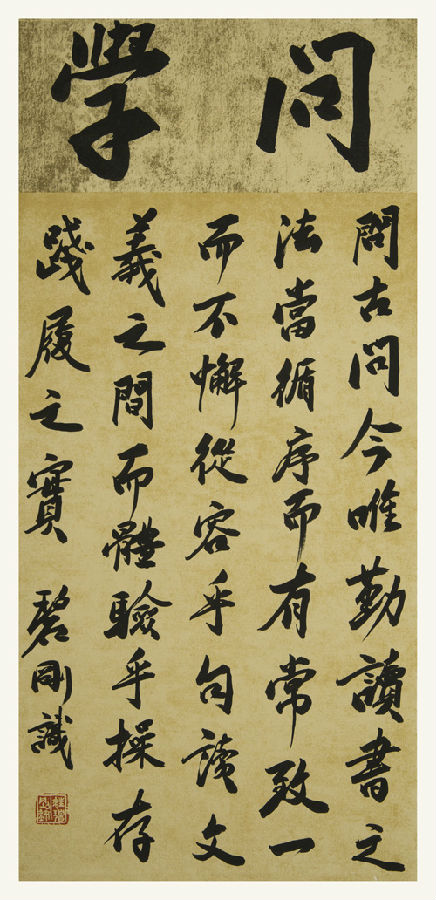 問學
問古問今唯勤讀書之
法當循序而有常致一
而不懈從容乎句讀文
義之間而體驗乎操存
踐履之實 碧剛識